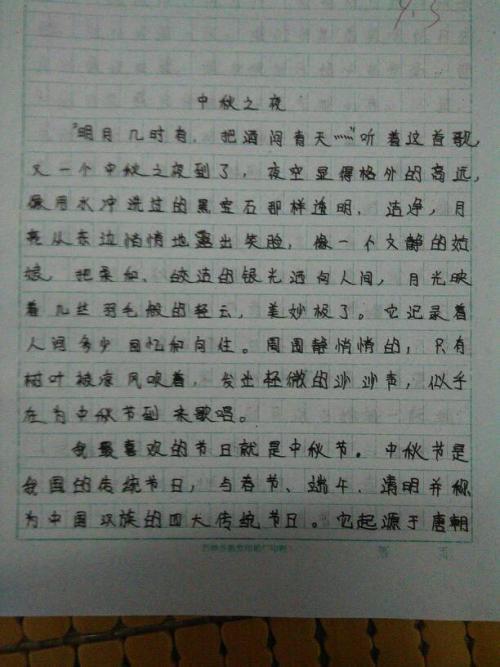 中秋之夜
"明月几时有，把酒问青天……"听着这首歌，
又一个中秋之夜到了，夜空显得格外的高远，
像用水冲洗过的黑宝石那样透明、洁净，月
亮从东边悄悄地露出笑脸，像一个文静的姑
娘，把柔和、皎洁的银光洒向人间，月光映
着几丝羽毛般的轻云，美妙极了。它记录着
人间多少回忆和向往。周围静悄悄的，只有
树叶被凉风吹着，发出轻微的沙沙声，似乎
在为中秋节到来歌唱。
我最喜欢的节日就是中秋节。中秋节是
我国的传统节日，与春节、端午、清明并称
为中国汉族的四大传统节日。它起源于唐朝
第 页